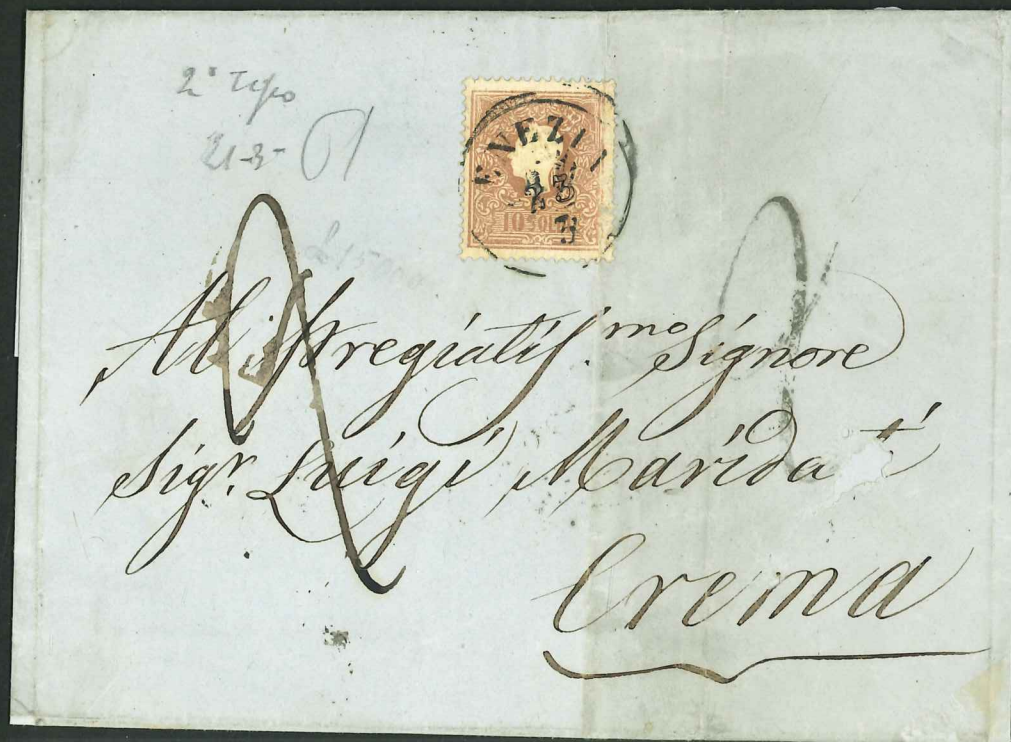 2° Tipo
VENEZIA
23
3
10 SOLDI
Al Pregiatiss.mo Signore
Sigr. Luigi Marida ti
Crema